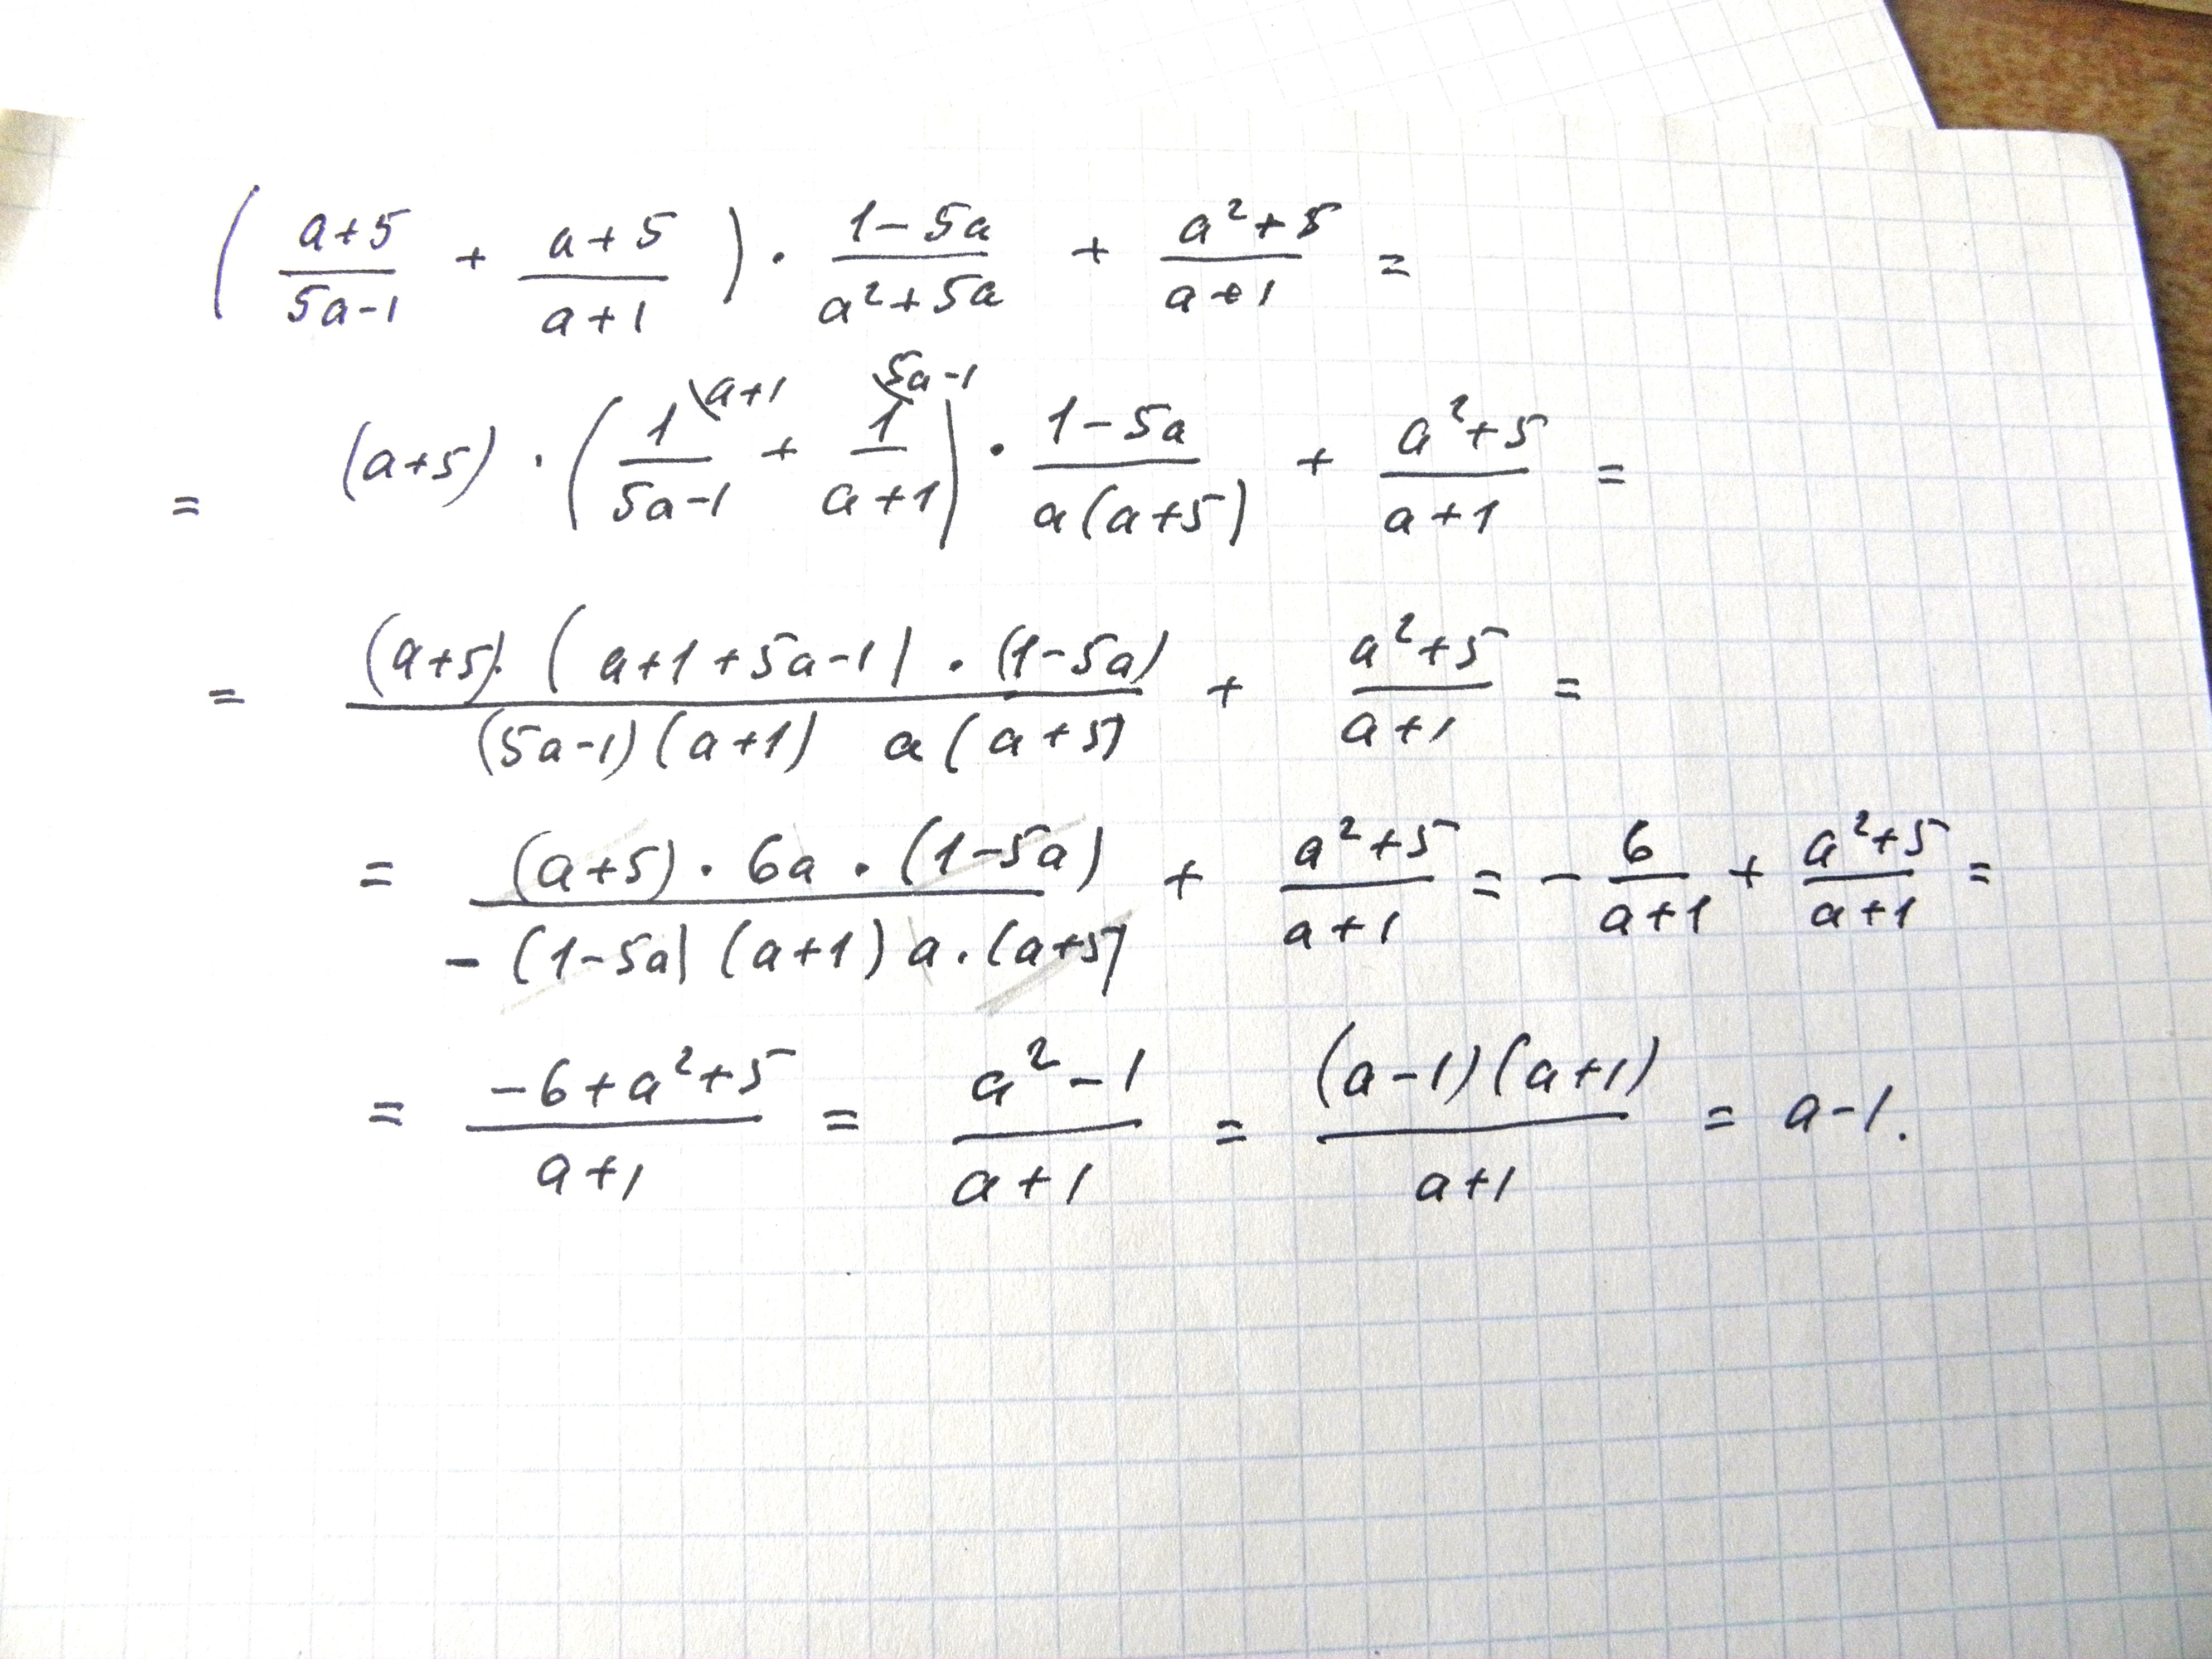 ( (a+5)/(5a-1) + (a+5)/(a+1) ) · (1-5a)/(a²+5a) + (a²+5)/(a+1) =
= (a+5) · ( 1\a+1/(5a-1) + 1\5a-1/(a+1) ) · (1-5a)/(a(a+5)) + (a²+5)/(a+1) =
= ((a+5)·(a+1+5a-1)·(1-5a))/((5a-1)(a+1) a(a+5)) + (a²+5)/(a+1) =
= ((a+5)·6a·(1-5a))/(-(1-5a)(a+1)a·(a+5)) + (a²+5)/(a+1) = - 6/(a+1) + (a²+5)/(a+1) =
= (-6+a²+5)/(a+1) = (a²-1)/(a+1) = ((a-1)(a+1))/(a+1) = a-1.